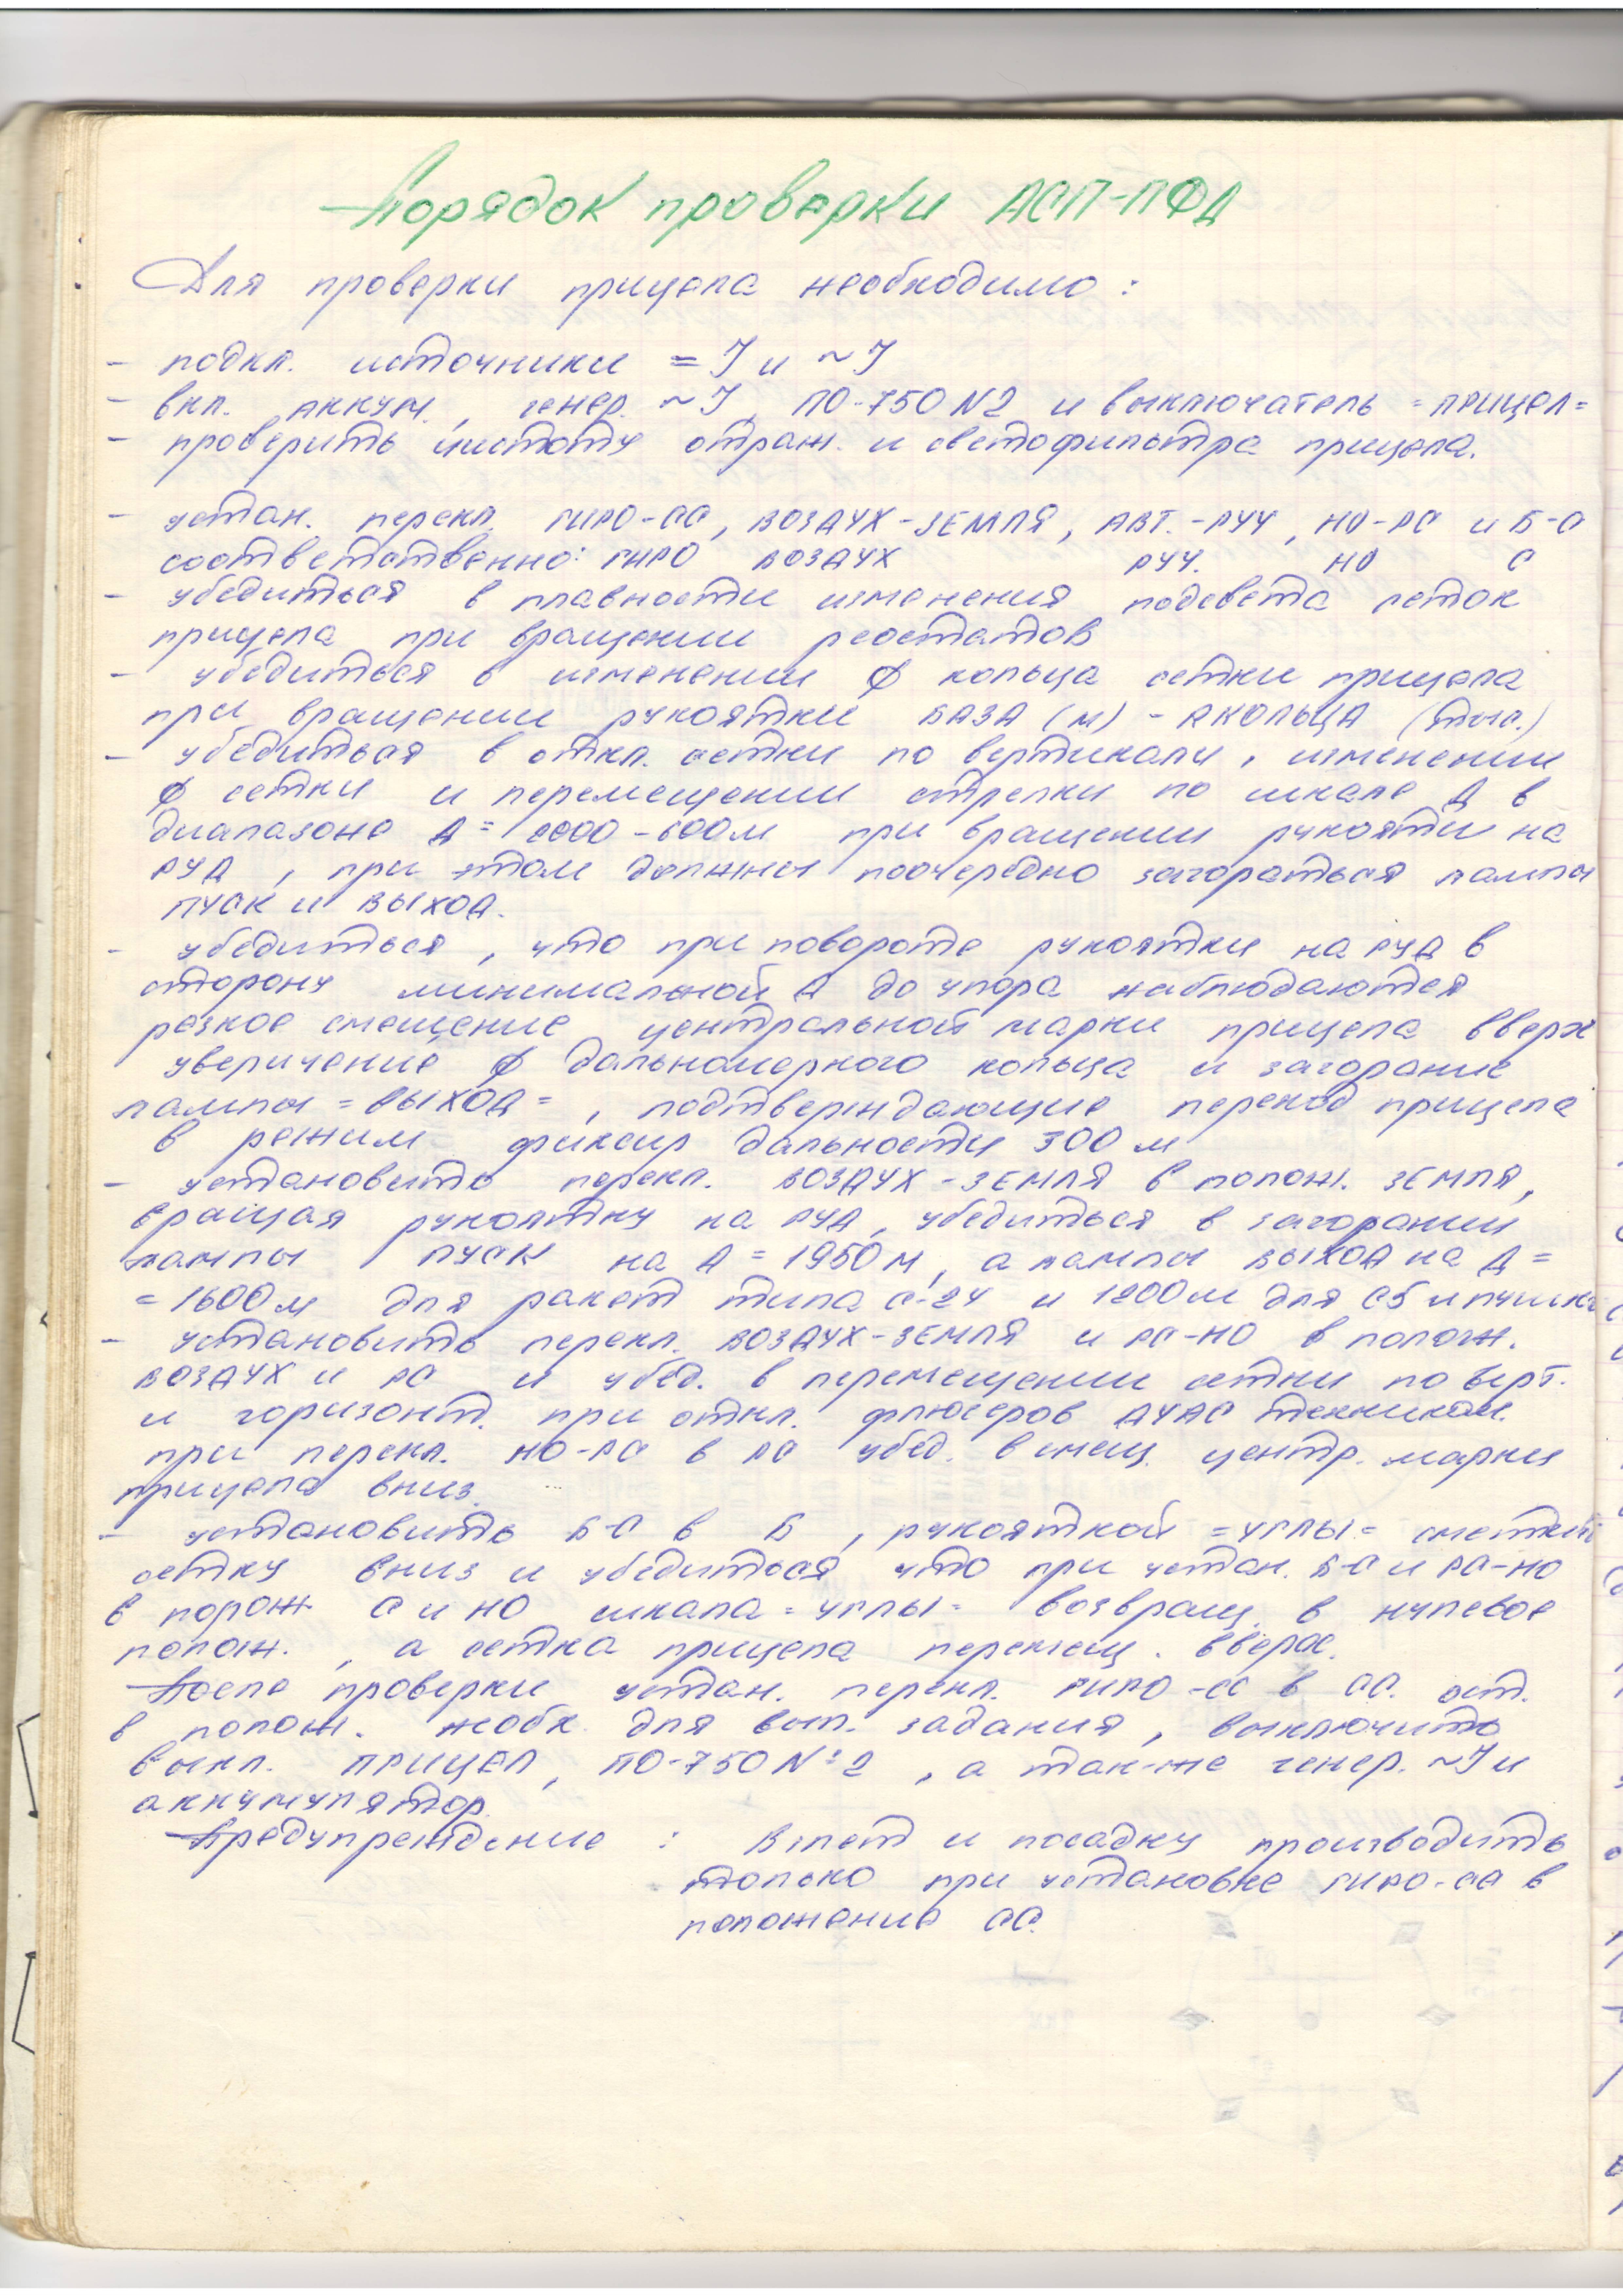 Порядок проверки АСП-ПФД
Для проверки прицела необходимо:
- подкл. источники = J и ~ J
- вкл. аккум., генер. ~ J, ПО-750 N2 и выключатель =ПРИЦЕЛ=
- проверить чистоту отраж. и светофильтра прицела.
- устан. перекл. ГИРО-СС, ВОЗДУХ-ЗЕМЛЯ, АВТ.-РУЧ, НО-РС и Б-С
соответственно: ГИРО ВОЗДУХ РУЧ. НО С
- убедиться в плавности изменения подсвета сеток
прицела при вращении реостатов
- убедиться в изменении ф кольца сетки прицела
при вращении рукоятки БАЗА (м) - RКОЛЬЦА (тыс.)
- убедиться в откл. сетки по вертикали, изменении
ф сетки и перемещении стрелки по шкале Д в
диапазоне Д = 2000-600м при вращении рукояти на
РУД, при этом должны поочередно загораться лампы
ПУСК и ВЫХОД.
- убедиться, что при повороте рукоятки на РУД в
сторону минимальной Д до упора наблюдаются
резкое смещение центральной марки прицела вверх
увеличение ф дальномерного кольца и загорание
лампы =ВЫХОД=, подтверждающие переход прицела
в режим фиксир дальности 300 м
- установить перекл. ВОЗДУХ-ЗЕМЛЯ в полож. ЗЕМЛЯ,
вращая рукоятку на РУД, убедиться в загорании
лампы ПУСК на Д = 1950 м, а лампы ВЫХОД на Д =
= 1600 м для ракет типа С-24 и 1200 м для С5 и пушки
- установить перекл. ВОЗДУХ-ЗЕМЛЯ и РС-НО в полож.
ВОЗДУХ и РС и убед. в перемещении сетки по верт.
и горизонт. при откл. флюгеров ДУАС техником.
при перекл. НО-РС в РС убед. в смещ. центр. марки
прицела вниз.
- установить Б-С в Б, рукояткой =УГЛЫ= сместить
сетку вниз и убедиться что при устан. Б-С и РС-НО
в полож С и НО шкала =УГЛЫ= возвращ. в нулевое
полож., а сетка прицела перемещ. вверх.
После проверки устан. перекл. ГИРО-СС в СС. ост.
в полож. необх. для вып. задания, выключить
выкл. ПРИЦЕЛ, ПО-750 N° 2, а так-же генер. ~ J и
аккумулятор.
Предупреждение : Взлет и посадку производить
только при установке ГИРО-СС в
положение СС.